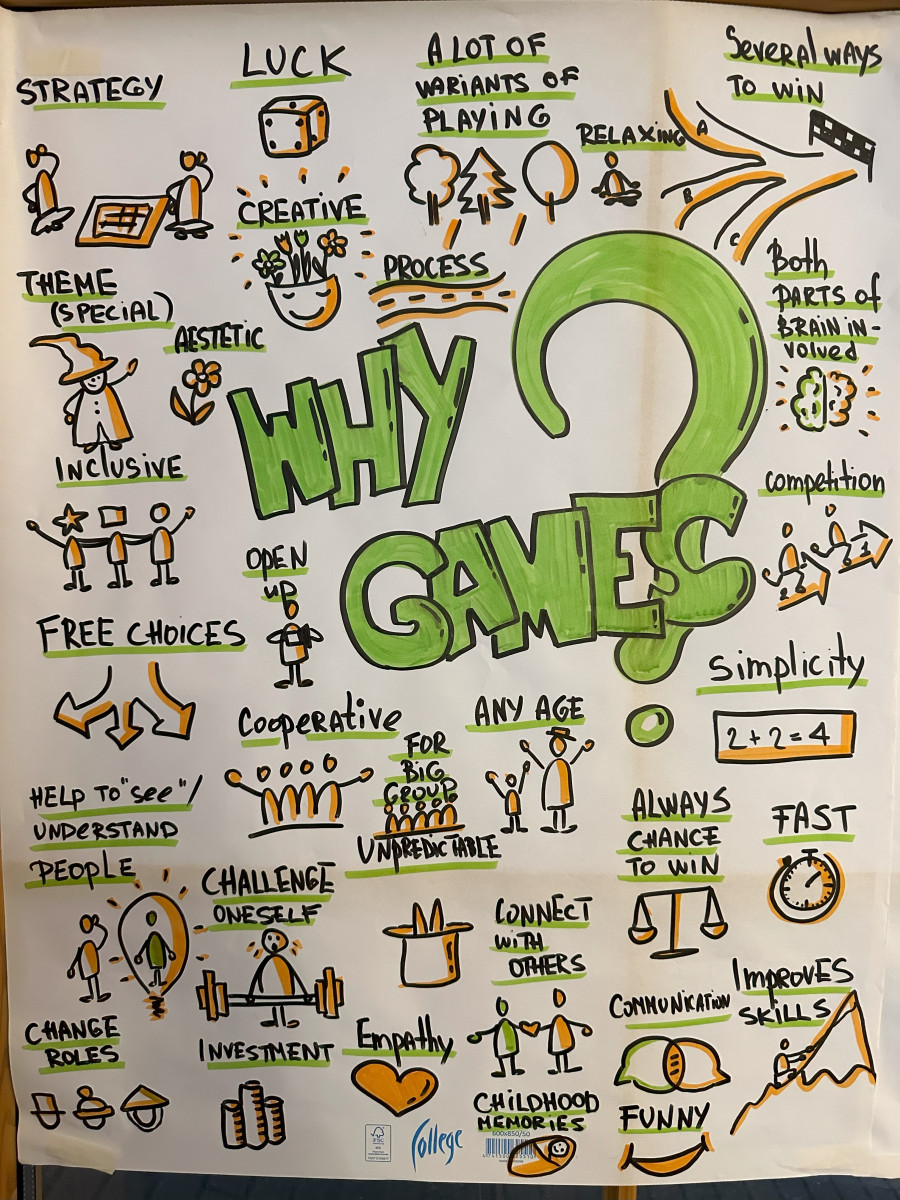 STRATEGY
LUCK
A LOT OF
VARIANTS OF
PLAYING
SEVERAL WAYS
TO WIN
RELAXING
A
B
C
CREATIVE
PROCESS
THEME
(SPECIAL)
AESTETIC
Both
PARTS of
BRAIN IN-
volved
WHY
GAMES?
INCLUSIVE
competition
2
1
OPEN
UP
FREE CHOICES
Simplicity
2+2=4
Cooperative
FOR
BIG
GROUP
ANY AGE
UNPREDICTABLE
HELP TO "see"/
UNDERSTAND
PEOPLE
ALWAYS
CHANCE
TO WIN
FAST
CHALLENGE
ONESELF
CONNECT
WITH
OTHERS
COMMUNICATION
IMPROVES
SKILLS
CHANGE
ROLES
INVESTMENT
Empathy
CHILDHOOD
MEMORIES
FUNNY
FSC
College
600x850/50